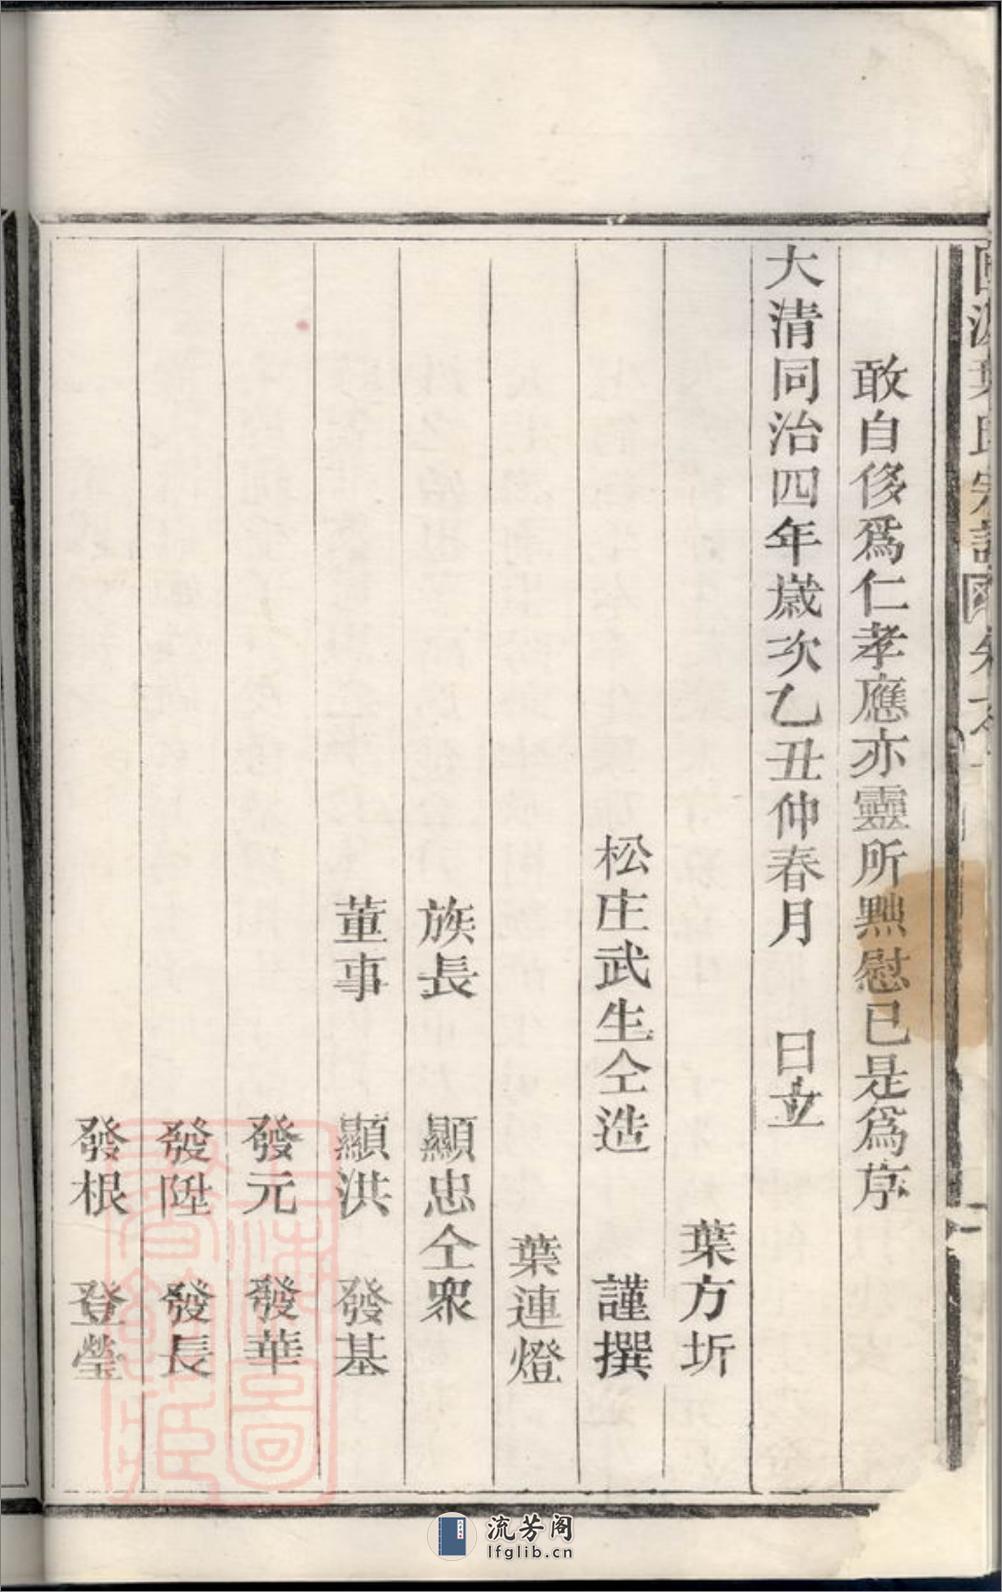 敢自侈爲仁孝應亦靈所黙慰已是爲序
大清同治四年歲次乙丑仲春月　日立
葉方圻
松庄武生仝造　謹撰
葉連燈
族長　顯忠仝衆
董事　顯洪　發基
發元　發華
發陞　發長
發根　登瑩
葉氏宗譜
上海圖書館藏
流芳阁
lfglib.cn